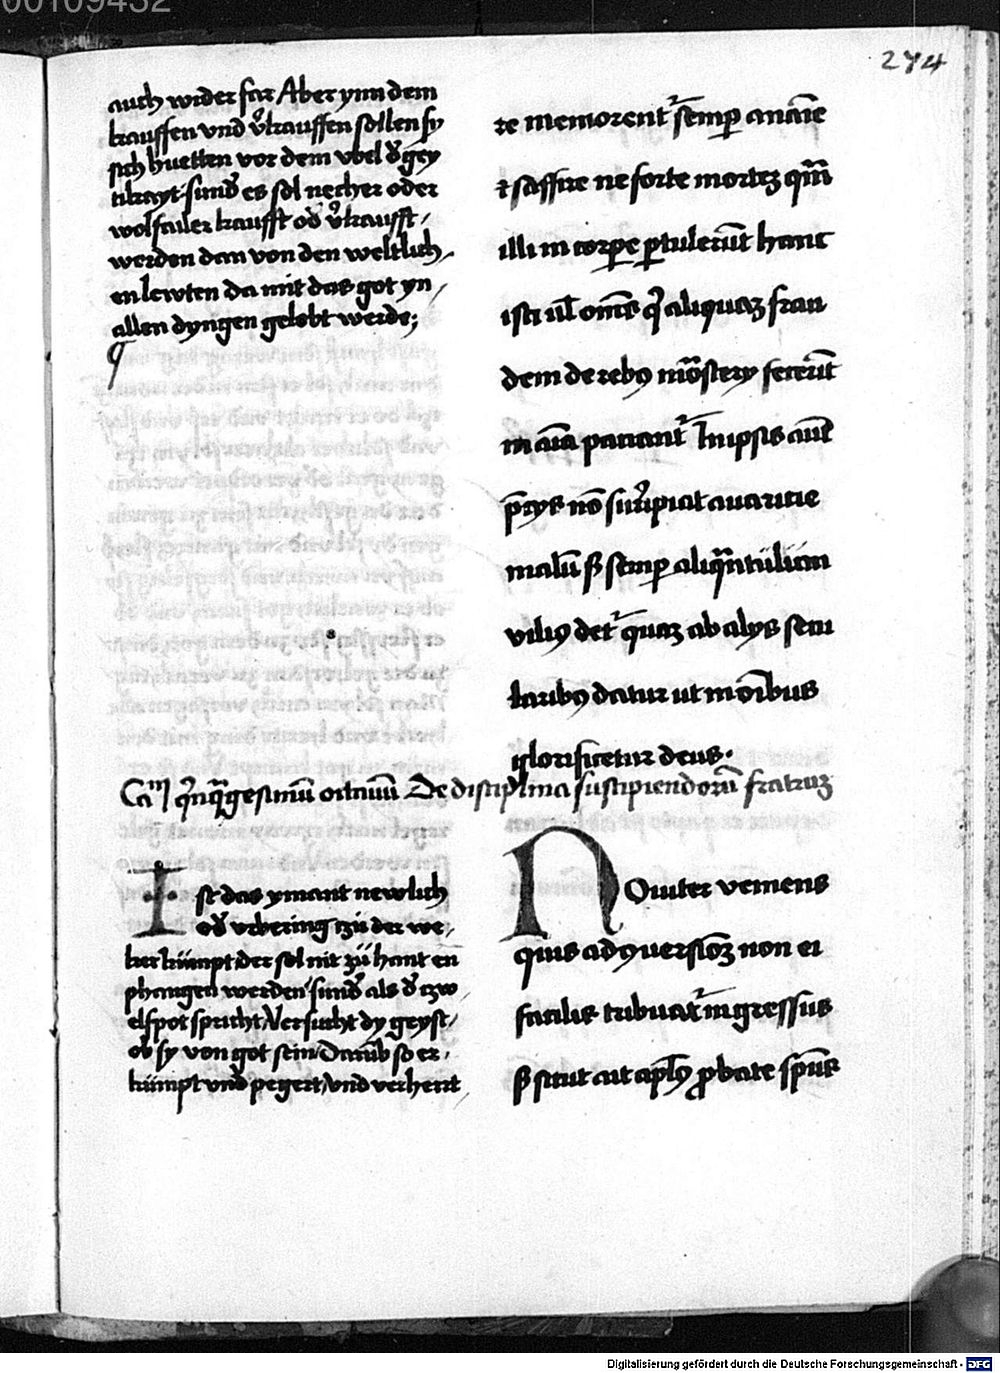 274
auch wider far Aber ynn dem
kauffen vnd v͛kauffen sollen sy
sich huetten vor dem vbel d͛ gey
tikayt sund͛ es sol necher oder
wolfailer kaufft od͛ v͛kaufft /
werden dan von den weltlich /
en lewten da mit das got yn /
allen dyngen gelobt werde;
te memorent᷑ semꝑ ananie
⁊ saffire ne forte morteꝫ qm̄
illi in corpe ꝑtulerūt hanc
isti ul̄ om̄s q͛ aliquaꝫ frau
dem de rebꝯ mōstery fecerūt
in aīa paciant᷑ In ipsis aūt
p̄cys nō surripiat auaricie
malū sꝫ semꝑ aliqᷓntulum
viliꝯ det᷑ quaꝫ ab alys secu
laribꝯ datur ut in oībus
glorificetur deus.
Ca‷ qͥnqᷓgesimū octauū De disciplina suscipiendorū fratruꝫ
Ist das ymant newlich
od͛ vrbering tzü der we /
ker kümpt der sol nit zü hant en
phangen werden sund͛ als d͛ tzw
elfpot spricht Versucht dy geyst /
ob sy von got sein Darūb so er /
kümpt vnd pegert / vnd verherrt
Nouiter veniens
quis ad ꝯuersioꝫ non ei
facilis tribuat᷑ ingressus
sꝫ sicut ait apl̄ꝯ ꝓbate sp̄us
Digitalisierung gefördert durch die Deutsche Forschungsgemeinschaft - DFG